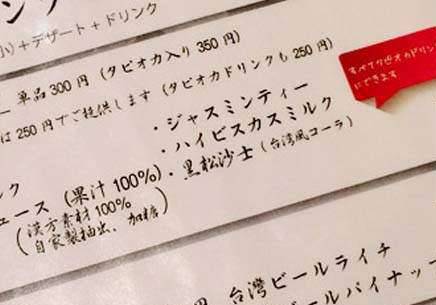 小)+デザート+ドリンク
単品300円 (タピオカ入り 350円)
は 250円でご提供します (タピオカドリンクも 250円)
すべてタピオカドリンク
にできます
・ジャスミンティー
・ハイビスカスミルク
・黒松沙士 (台湾風コーラ)
ンク
ュース (果汁 100%)
(漢方素材 100%
自家製抽出、加糖)
円 台湾ビールライチ
ビールパイナッ